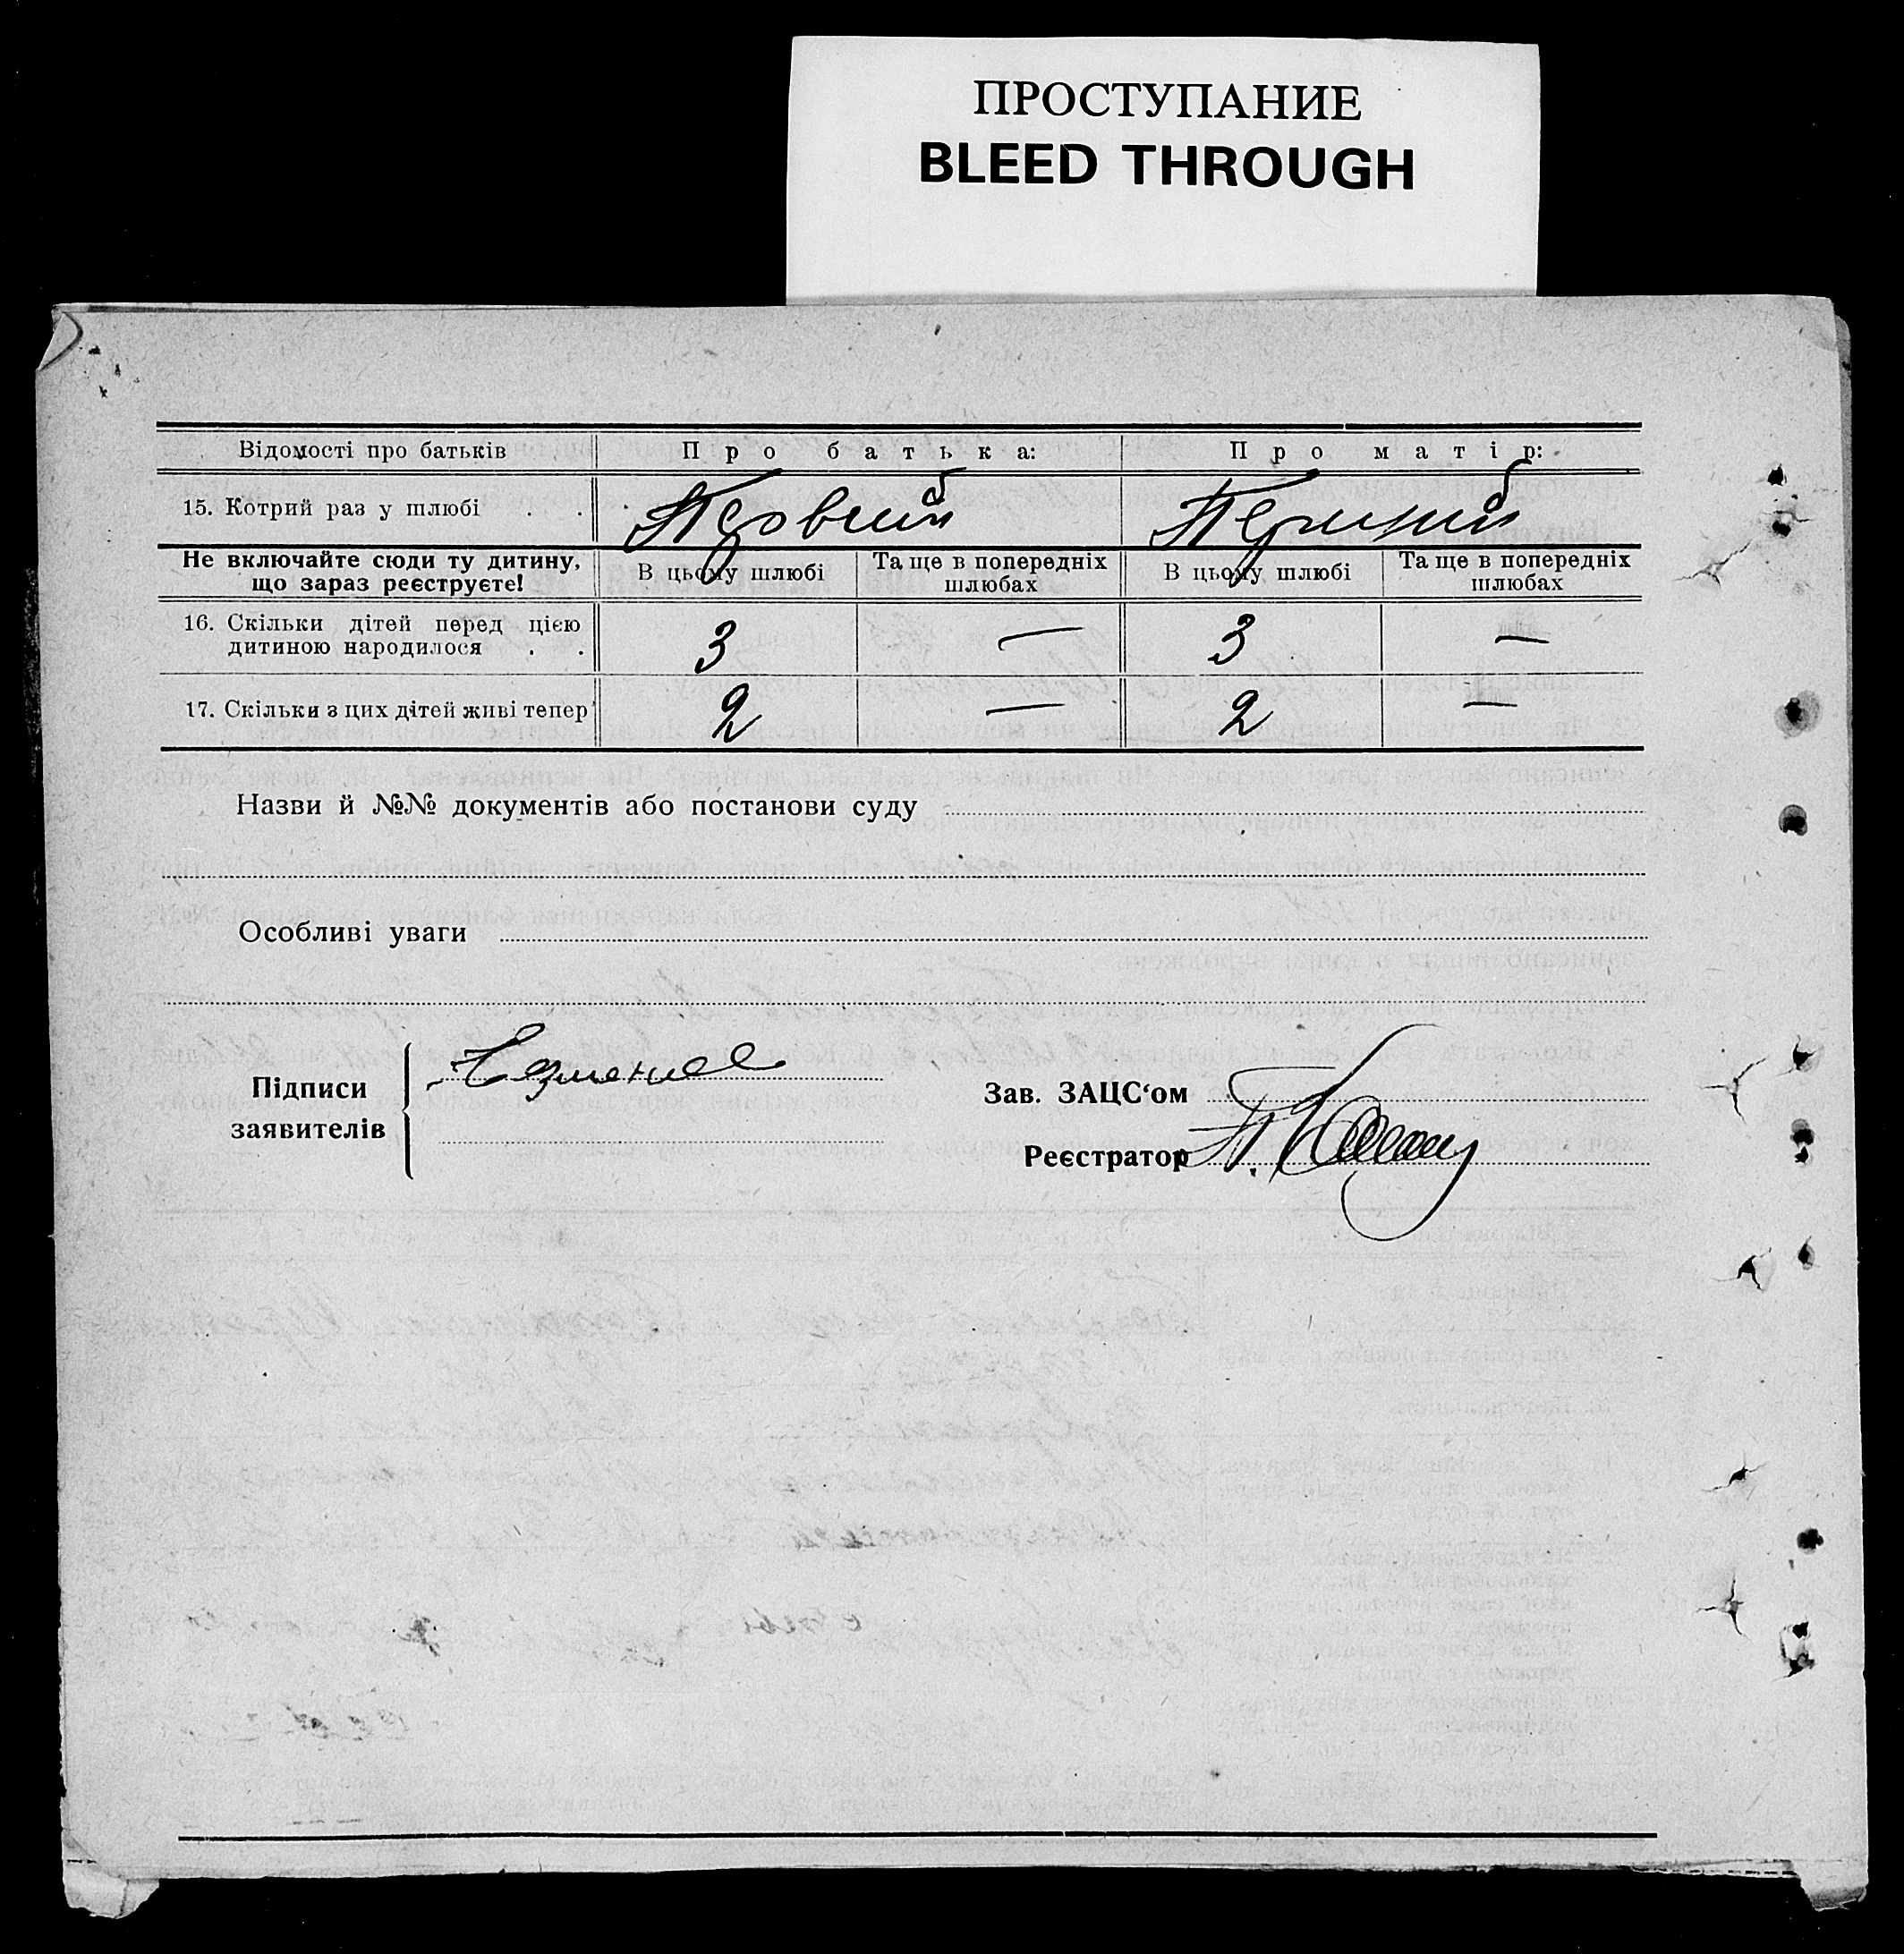 ПРОСТУПАНИЕ
BLEED THROUGH
Відомості про батьків Про батька: Про матір:
15. Котрий раз у шлюбі . . Первий Перший
Не включайте сюди ту дитину, що зараз реєструєте! В цьому шлюбі Та ще в попередніх шлюбах В цьому шлюбі Та ще в попередніх шлюбах
16. Скільки дітей перед цією
дитиною народилося . . 3 — 3 —
17. Скільки з цих дітей живі тепер 2 — 2 —
Назви й №№ документів або постанови суду
Особливі уваги
Підписи
заявителів
Зав. ЗАЦС‘ом
Реєстратор